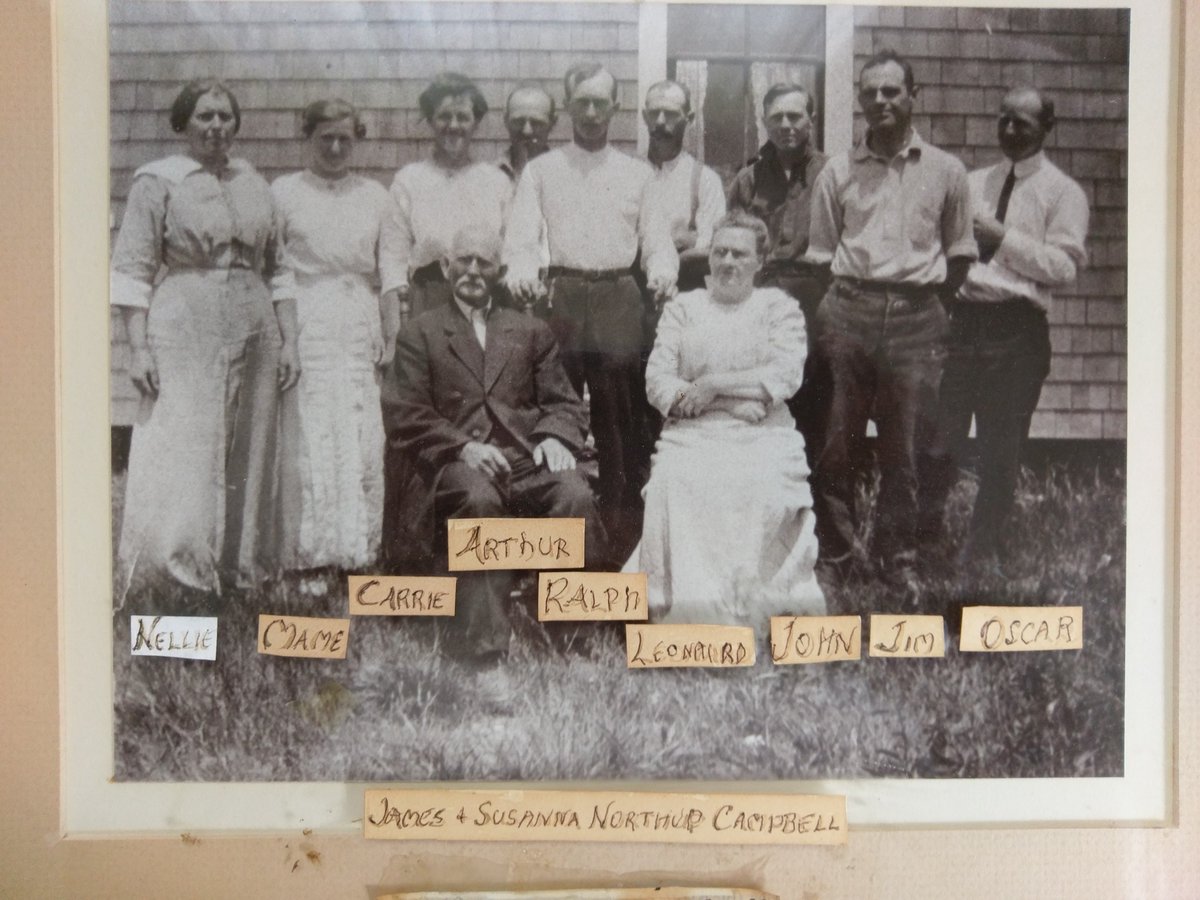 ARTHUR
CARRIE RALPH
NELLIE MAME LEONARD JOHN JIM OSCAR
JAMES & SUSANNA NORTHUP CAMPBELL